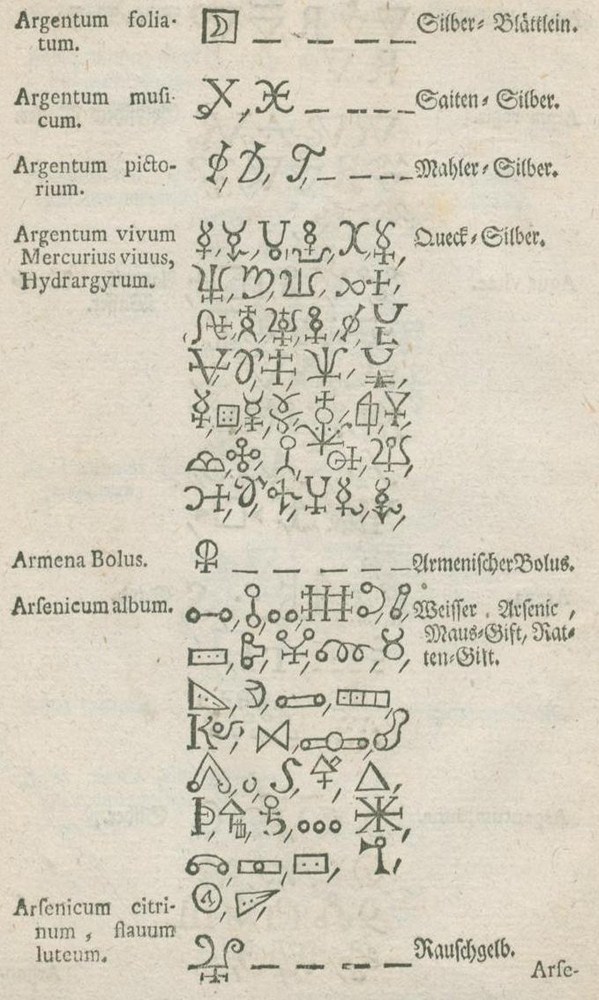 Argentum folia- Silber-Blättlein.
tum.
Argentum muſi- Saiten-Silber.
cum.
Argentum picto- Mahler-Silber.
rium.
Argentum vivum Queck-Silber.
Mercurius viuus,
Hydrargyrum.
Armena Bolus. Armeniſcher Bolus.
Arſenicum album. Weiſſer Arſenic,
Maus-Gift, Rat-
ten-Gift.
Arſenicum citri-
num, flauum
luteum. Rauſchgelb.
Arſe-